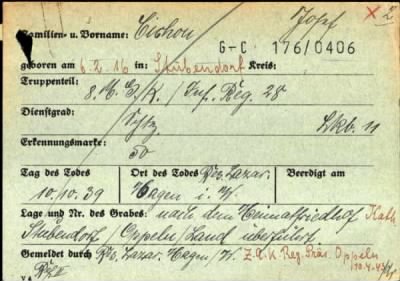 Josef
x 2
Familien- u. Vorname: Cichon
G-C 176/0406
geboren am 6.2.16 in Stubendorf Kreis:
Truppenteil: 8. M.G.K. / Inf. Reg. 28
Dienstgrad: Schtz. Lkb. 11
Erkennungsmarke: 50
Tag des Todes Ort des Todes Res. Lazar. Beerdigt am
10.10.39 Hagen i. W.
Lage und Nr. des Grabes: nach dem Heimatfriedhof Kath.
Stubendorf / Oppeln / Land überführt.
Gemeldet durch Res. Lazar. Hagen / W. Z.A.K. Reg. Präs. Oppeln